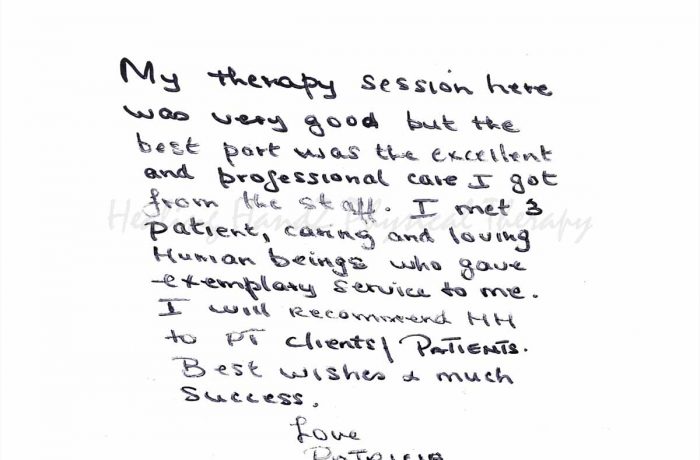 My therapy session here
was very good but the
best part was the excellent
and professional care I got
from the staff. I met 3
Healing Hands Physical Therapy
patient, caring and loving
Human beings who gave
exemplary service to me.
I will recommend HH
to PT clients/PATIENTS.
Best wishes & much
success.
Love
PATRICIA